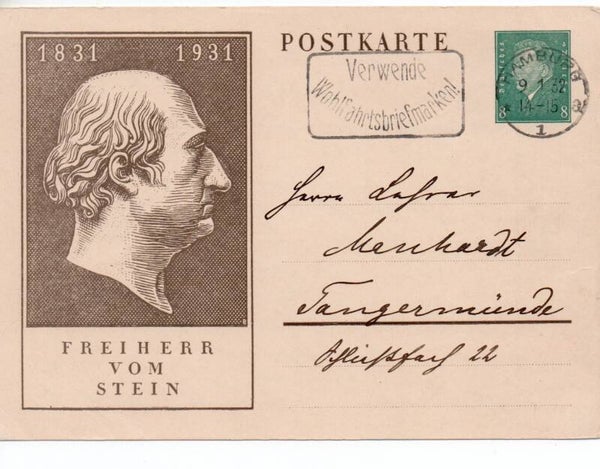 1831 1931
FREIHERR
VOM
STEIN
POSTKARTE
Verwende
Wohlfahrtsbriefmarken!
8 8
HAMBURG
9 32
14-15
1
Herrn Lehrer
Menhardt
Tangermünde
Schließfach 22